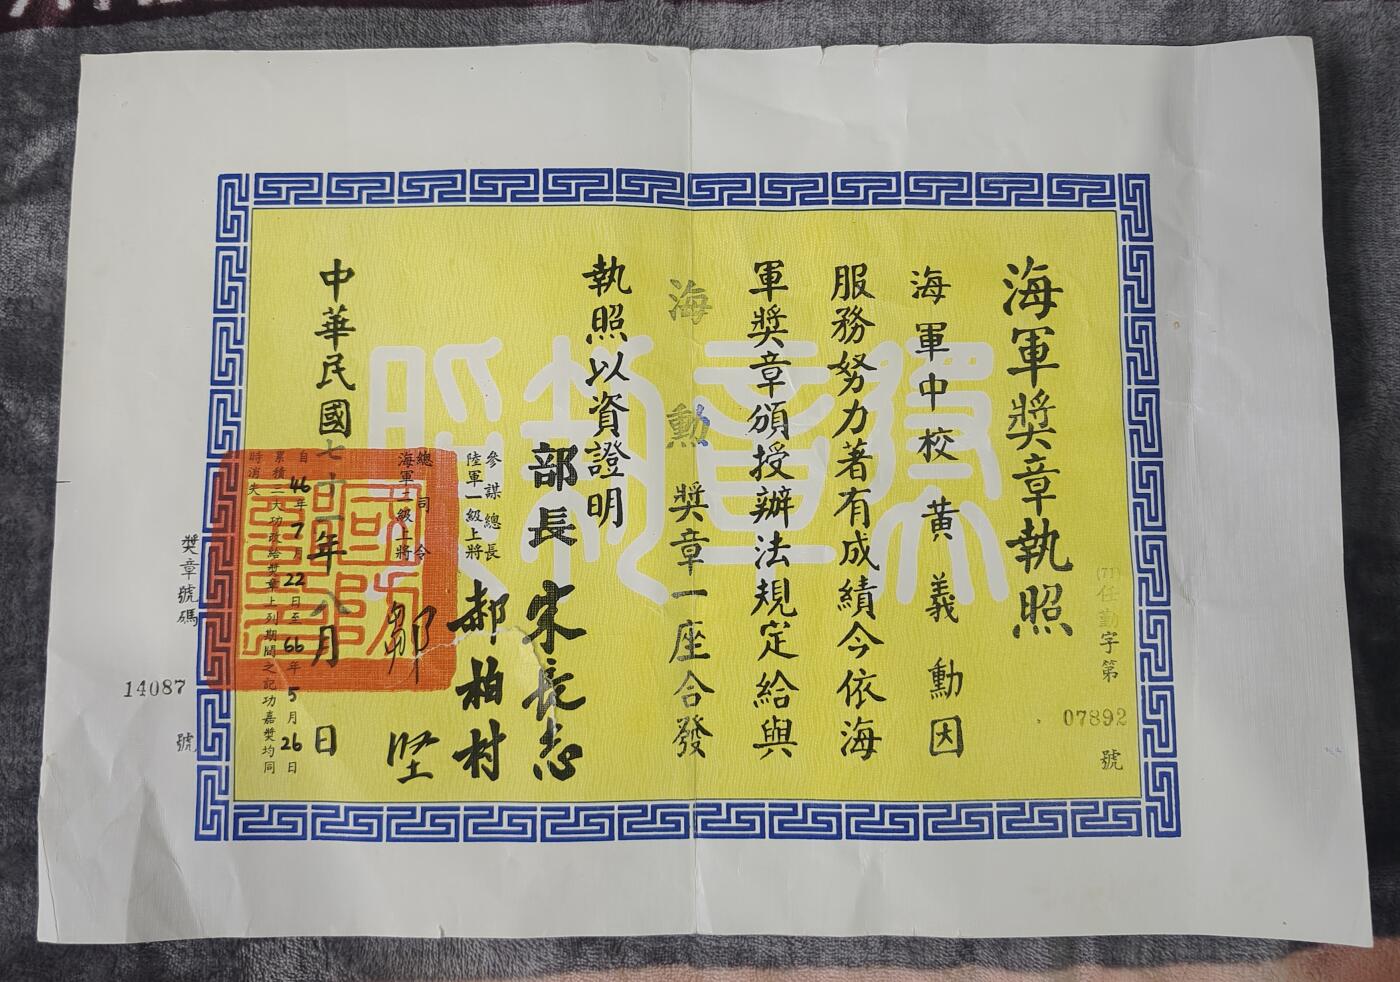 海軍獎章執照
(71)任勤字第07892號
海軍中校黃義勳因
服務努力著有成績今依海
軍獎章頒授辦法規定給與
海勳獎章一座合發
執照以資證明
部長宋長志
參謀總長
陸軍一級上將
郝柏村
總司令
海軍二級上將
鄒堅
中華民國七十一年八月日
自46年7月22日至66年5月26日
累積二大功改給獎章上列期間之記功嘉獎均同
時消失
獎章號碼14087號
獎章執照
國防部印